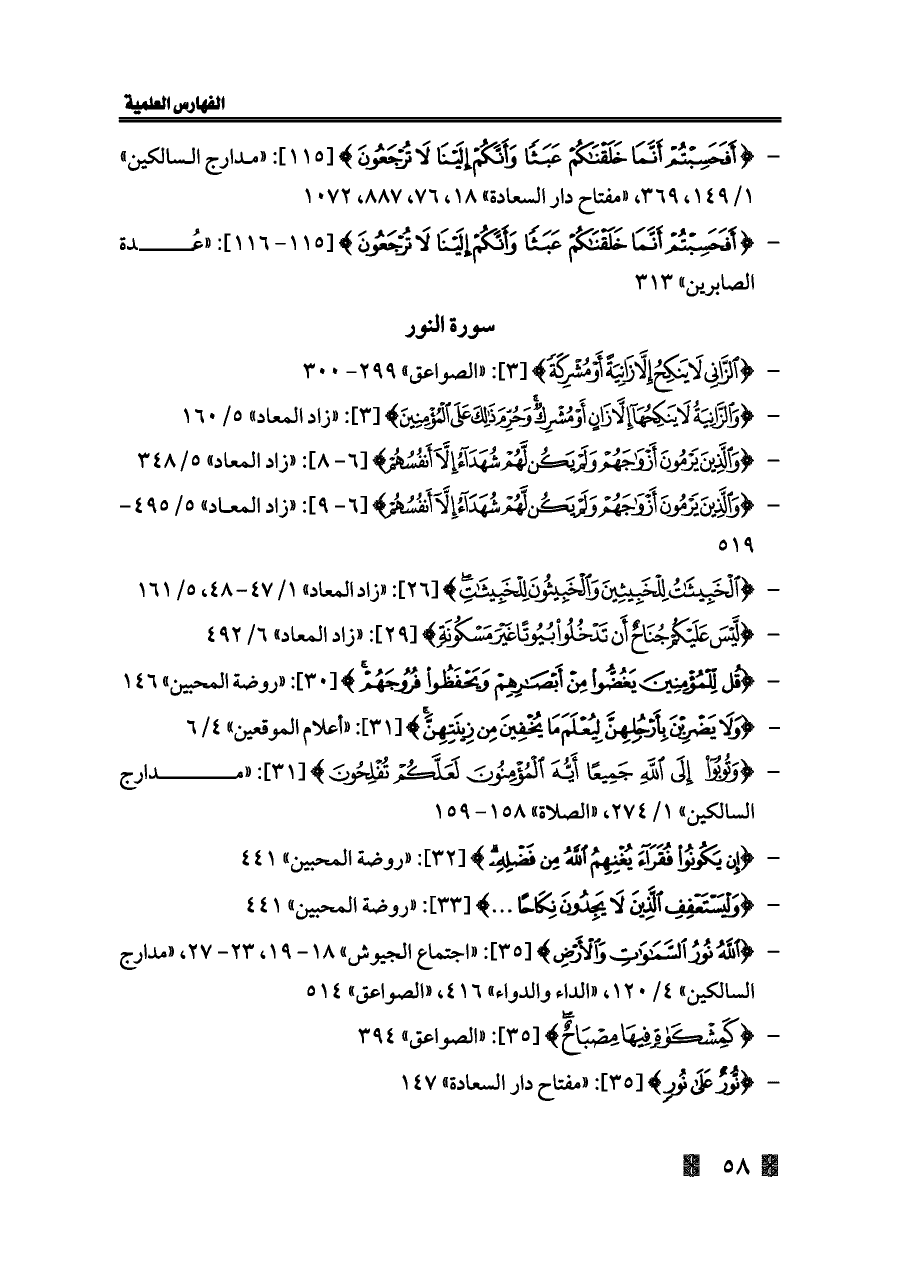 الفهارس العلمية
- ﴿أَفَحَسِبْتُمْ أَنَّمَا خَلَقْنَٰكُمْ عَبَثًا وَأَنَّكُمْ إِلَيْنَا لَا تُرْجَعُونَ﴾ [١١٥]: «مدارج السالكين»
١/ ١٤٩، ٣٦٩، «مفتاح دار السعادة» ١٨، ٧٦، ٨٨٧، ١٠٧٢
- ﴿أَفَحَسِبْتُمْ أَنَّمَا خَلَقْنَٰكُمْ عَبَثًا وَأَنَّكُمْ إِلَيْنَا لَا تُرْجَعُونَ﴾ [١١٥- ١١٦]: «عُـــــدة
الصابرين» ٣١٣
سورة النور
- ﴿ٱلزَّانِى لَا يَنكِحُ إِلَّا زَانِيَةً أَوْ مُشْرِكَةً﴾ [٣]: «الصواعق» ٢٩٩- ٣٠٠
- ﴿وَٱلزَّانِيَةُ لَا يَنكِحُهَآ إِلَّا زَانٍ أَوْ مُشْرِكٌ ۚ وَحُرِّمَ ذَٰلِكَ عَلَى ٱلْمُؤْمِنِينَ﴾ [٣]: «زاد المعاد» ٥/ ١٦٠
- ﴿وَٱلَّذِينَ يَرْمُونَ أَزْوَٰجَهُمْ وَلَمْ يَكُن لَّهُمْ شُهَدَآءُ إِلَّآ أَنفُسُهُمْ﴾ [٦- ٨]: «زاد المعاد» ٥/ ٣٤٨
- ﴿وَٱلَّذِينَ يَرْمُونَ أَزْوَٰجَهُمْ وَلَمْ يَكُن لَّهُمْ شُهَدَآءُ إِلَّآ أَنفُسُهُمْ﴾ [٦- ٩]: «زاد المعـاد» ٥/ ٤٩٥-
٥١٩
- ﴿ٱلْخَبِيثَٰتُ لِلْخَبِيثِينَ وَٱلْخَبِيثُونَ لِلْخَبِيثَٰتِ ۖ﴾ [٢٦]: «زاد المعاد» ١/ ٤٧- ٤٨، ٥/ ١٦١
- ﴿لَّيْسَ عَلَيْكُمْ جُنَاحٌ أَن تَدْخُلُوا۟ بُيُوتًا غَيْرَ مَسْكُونَةٍ﴾ [٢٩]: «زاد المعاد» ٦/ ٤٩٢
- ﴿قُل لِّلْمُؤْمِنِينَ يَغُضُّوا۟ مِنْ أَبْصَٰرِهِمْ وَيَحْفَظُوا۟ فُرُوجَهُمْ ۚ﴾ [٣٠]: «روضة المحبين» ١٤٦
- ﴿وَلَا يَضْرِبْنَ بِأَرْجُلِهِنَّ لِيُعْلَمَ مَا يُخْفِينَ مِن زِينَتِهِنَّ ۚ﴾ [٣١]: «أعلام الموقعين» ٤/ ٦
- ﴿وَتُوبُوٓا۟ إِلَى ٱللَّهِ جَمِيعًا أَيُّهَ ٱلْمُؤْمِنُونَ لَعَلَّكُمْ تُفْلِحُونَ﴾ [٣١]: «مـــــــدارج
السالكين» ١/ ٢٧٤، «الصلاة» ١٥٨- ١٥٩
- ﴿إِن يَكُونُوا۟ فُقَرَآءَ يُغْنِهِمُ ٱللَّهُ مِن فَضْلِهِۦ ۗ﴾ [٣٢]: «روضة المحبين» ٤٤١
- ﴿وَلْيَسْتَعْفِفِ ٱلَّذِينَ لَا يَجِدُونَ نِكَاحًا ...﴾ [٣٣]: «روضة المحبين» ٤٤١
- ﴿ٱللَّهُ نُورُ ٱلسَّمَٰوَٰتِ وَٱلْأَرْضِ﴾ [٣٥]: «اجتماع الجيوش» ١٨- ١٩، ٢٣- ٢٧، «مدارج
السالكين» ٤/ ١٢٠، «الداء والدواء» ٤١٦، «الصواعق» ٥١٤
- ﴿كَمِشْكَوٰةٍ فِيهَا مِصْبَاحٌ ۖ﴾ [٣٥]: «الصواعق» ٣٩٤
- ﴿نُّورٌ عَلَىٰ نُورٍ﴾ [٣٥]: «مفتاح دار السعادة» ١٤٧
٥٨